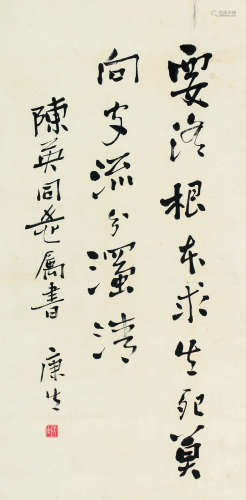 要從根本求生死莫
向支流分濁清
陳英同志属書
康生